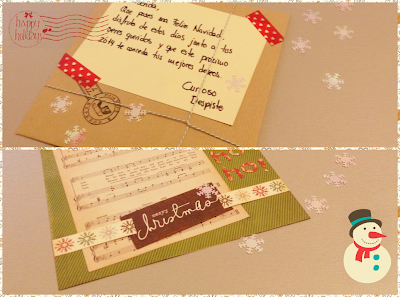 happy
holidays
Que pases una Feliz Navidad,
disfruta de estos días junto a tus
seres queridos y que este próximo
2014 te conceda tus mejores deseos.
Curioso
Despiste
HO
HO!
MERRY
Christmas